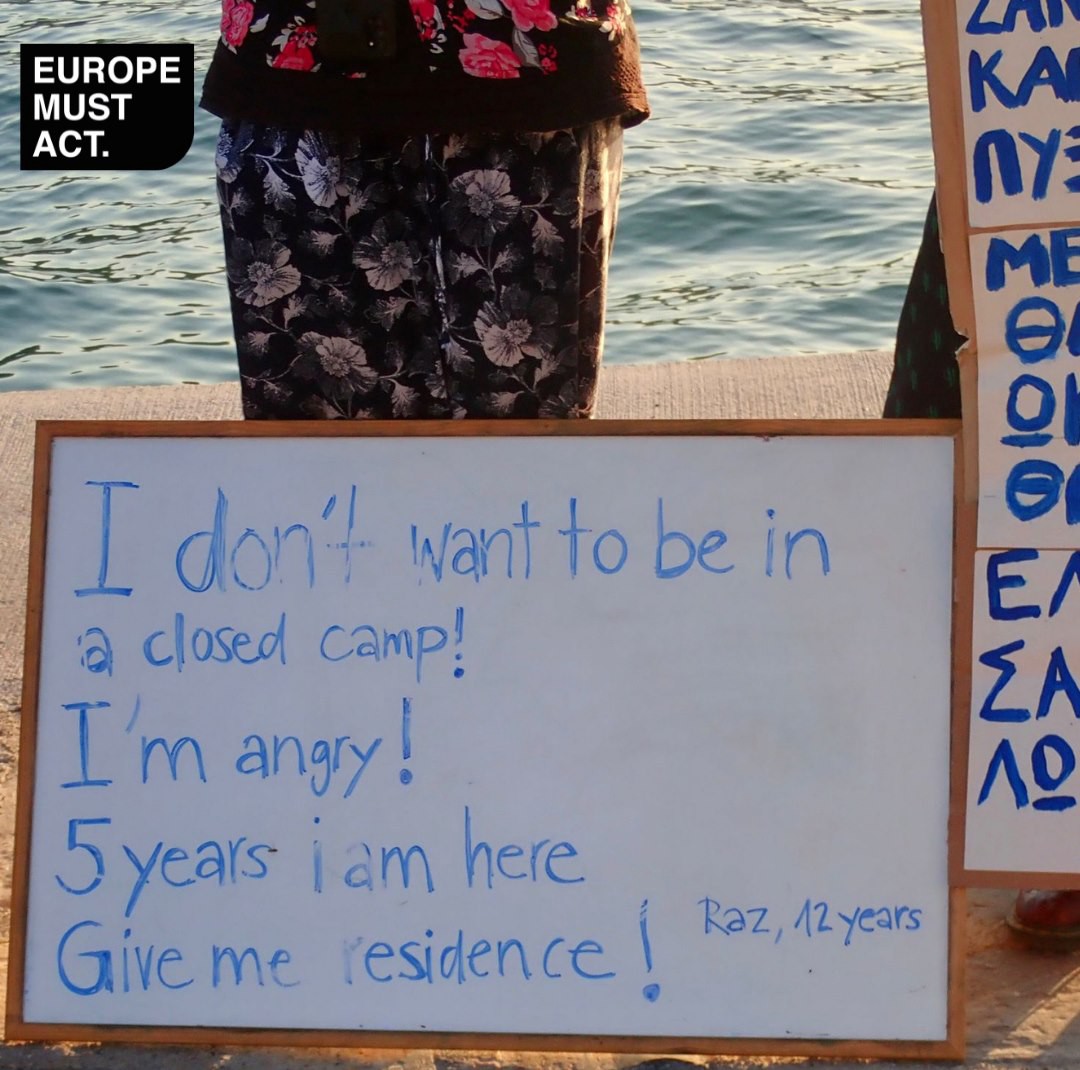 EUROPE
MUST
ACT.
I don't want to be in
a closed camp!
I'm angry!
5 years i am here
Give me residence!
Raz, 12 years
ΠΥΞ
ΜΕ
ΣΑ
ΛΩ